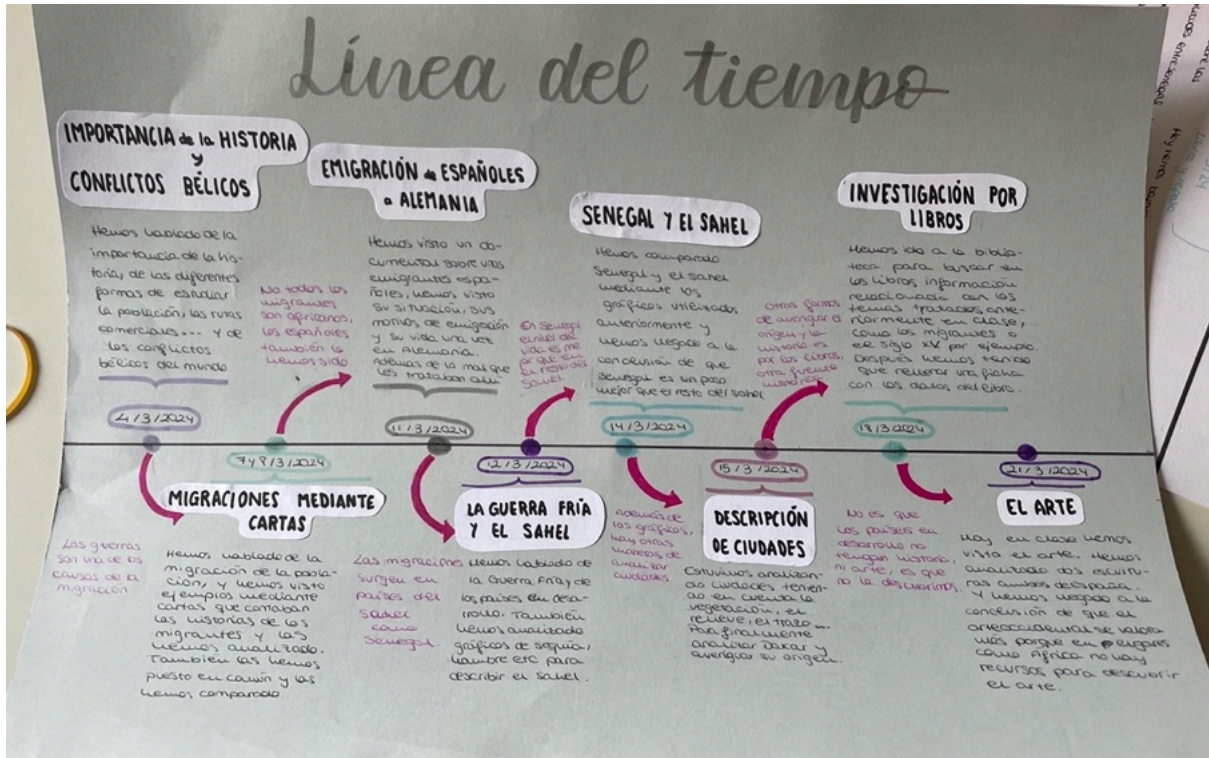 Línea del tiempo
IMPORTANCIA de la HISTORIA
y
CONFLICTOS BÉLICOS
Hemos hablado de la
importancia de la his-
toria, de las diferentes
formas de estudiar
la población, las rutas
comerciales... y de
los conflictos
bélicos del mundo
4/3/2024
Las guerras
son una de las
causas de la
migración
7 y 8/3/2024
MIGRACIONES MEDIANTE
CARTAS
Hemos hablado de la
migración de la pobla-
ción, y hemos visto
ejemplos mediante
cartas que contaban
las historias de los
migrantes y las
hemos analizado.
También las hemos
puesto en común y las
hemos comparado
No todos los
migrantes
son africanos,
los españoles
también lo
hemos sido
EMIGRACIÓN de ESPAÑOLES
a ALEMANIA
Hemos visto un do-
cumental sobre unos
emigrantes espa-
ñoles, hemos visto
su situación, sus
motivos de emigración
y su vida una vez
en Alemania.
Además de lo mal que
les trataban allí
11/3/2024
Las migraciones
surgen en
países del
Sahel
como
Senegal
12/3/2024
LA GUERRA FRÍA
Y EL SAHEL
Hemos hablado de
la Guerra Fría y de
los países en desa-
rrollo. También
hemos analizado
gráficos de sequía,
hambre etc para
describir el Sahel.
En Senegal
el nivel de
vida es me
jor que en
el resto del
Sahel
SENEGAL Y EL SAHEL
Hemos comparado
Senegal y el Sahel
mediante los
gráficos utilizados
anteriormente y
hemos llegado a la
conclusión de que
Senegal es un poco
mejor que el resto del Sahel
14/3/2024
Además de
los gráficos,
hay otras
maneras de
analizar
ciudades
15/3/2024
DESCRIPCIÓN
DE CIUDADES
Estuvimos analizan-
do ciudades tenien-
do en cuenta la
vegetación, el
relieve, el trazo...
Para finalmente
analizar Dakar y
averiguar su origen.
Otras formas
de averiguar
origen y la
historia es
por los libros,
otra fuente
INVESTIGACIÓN POR
LIBROS
Hemos ido a la biblio-
teca para buscar en
los libros información
relacionada con los
temas tratados ante-
riormente en clase,
como los migrantes o
el siglo XX por ejemplo.
Después hemos tenido
que rellenar una ficha
con los datos del libro.
18/3/2024
No es que
los países en
desarrollo no
tengan historia,
ni arte, es que
no la descubrimos.
21/3/2024
EL ARTE
Hoy en clase hemos
visto el arte. Hemos
analizado dos escultu-
ras ambas de España.
Y hemos llegado a la
conclusión de que el
arte occidental se valora
más porque en lugares
como África no hay
recursos para descubrir
el arte.